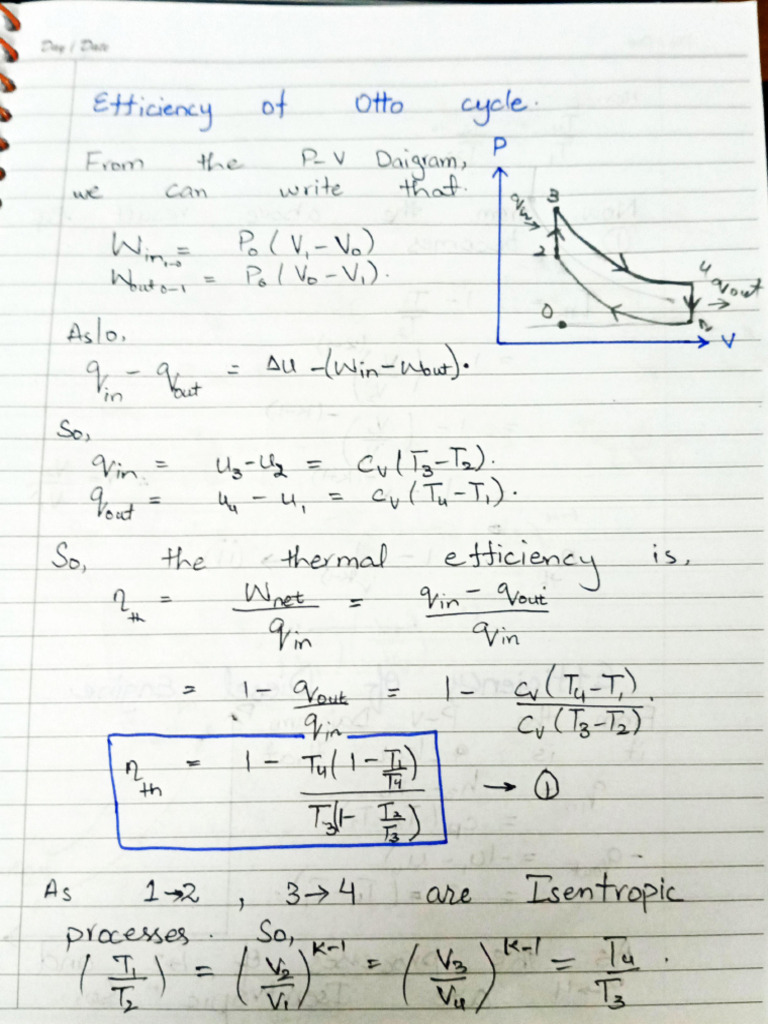 Day / Date
Efficiency of Otto cycle.
From the P-V Daigram,
we can write that.
W_in₁₋₀ = P₀ (V₁ - V₀)
W_out₀₋₁ = P₀ (V₀ - V₁).
Also,
q_in - q_out = Δu - (W_in - W_out).
So,
q_in = u₃ - u₂ = C_v (T₃ - T₂).
q_out = u₄ - u₁ = C_v (T₄ - T₁).
So, the thermal efficiency is,
η_th = W_net / q_in = (q_in - q_out) / q_in
= 1 - q_out / q_in = 1 - C_v (T₄ - T₁) / C_v (T₃ - T₂).
η_th = 1 - T₄ (1 - T₁/T₄) / T₃ (1 - T₂/T₃) → ①
As 1→2, 3→4 are Isentropic
processes. So,
(T₁/T₂) = (V₂/V₁)^(K-1) = (V₃/V₄)^(K-1) = T₄/T₃.
P
q_in
3
2
4
q_out
0
V